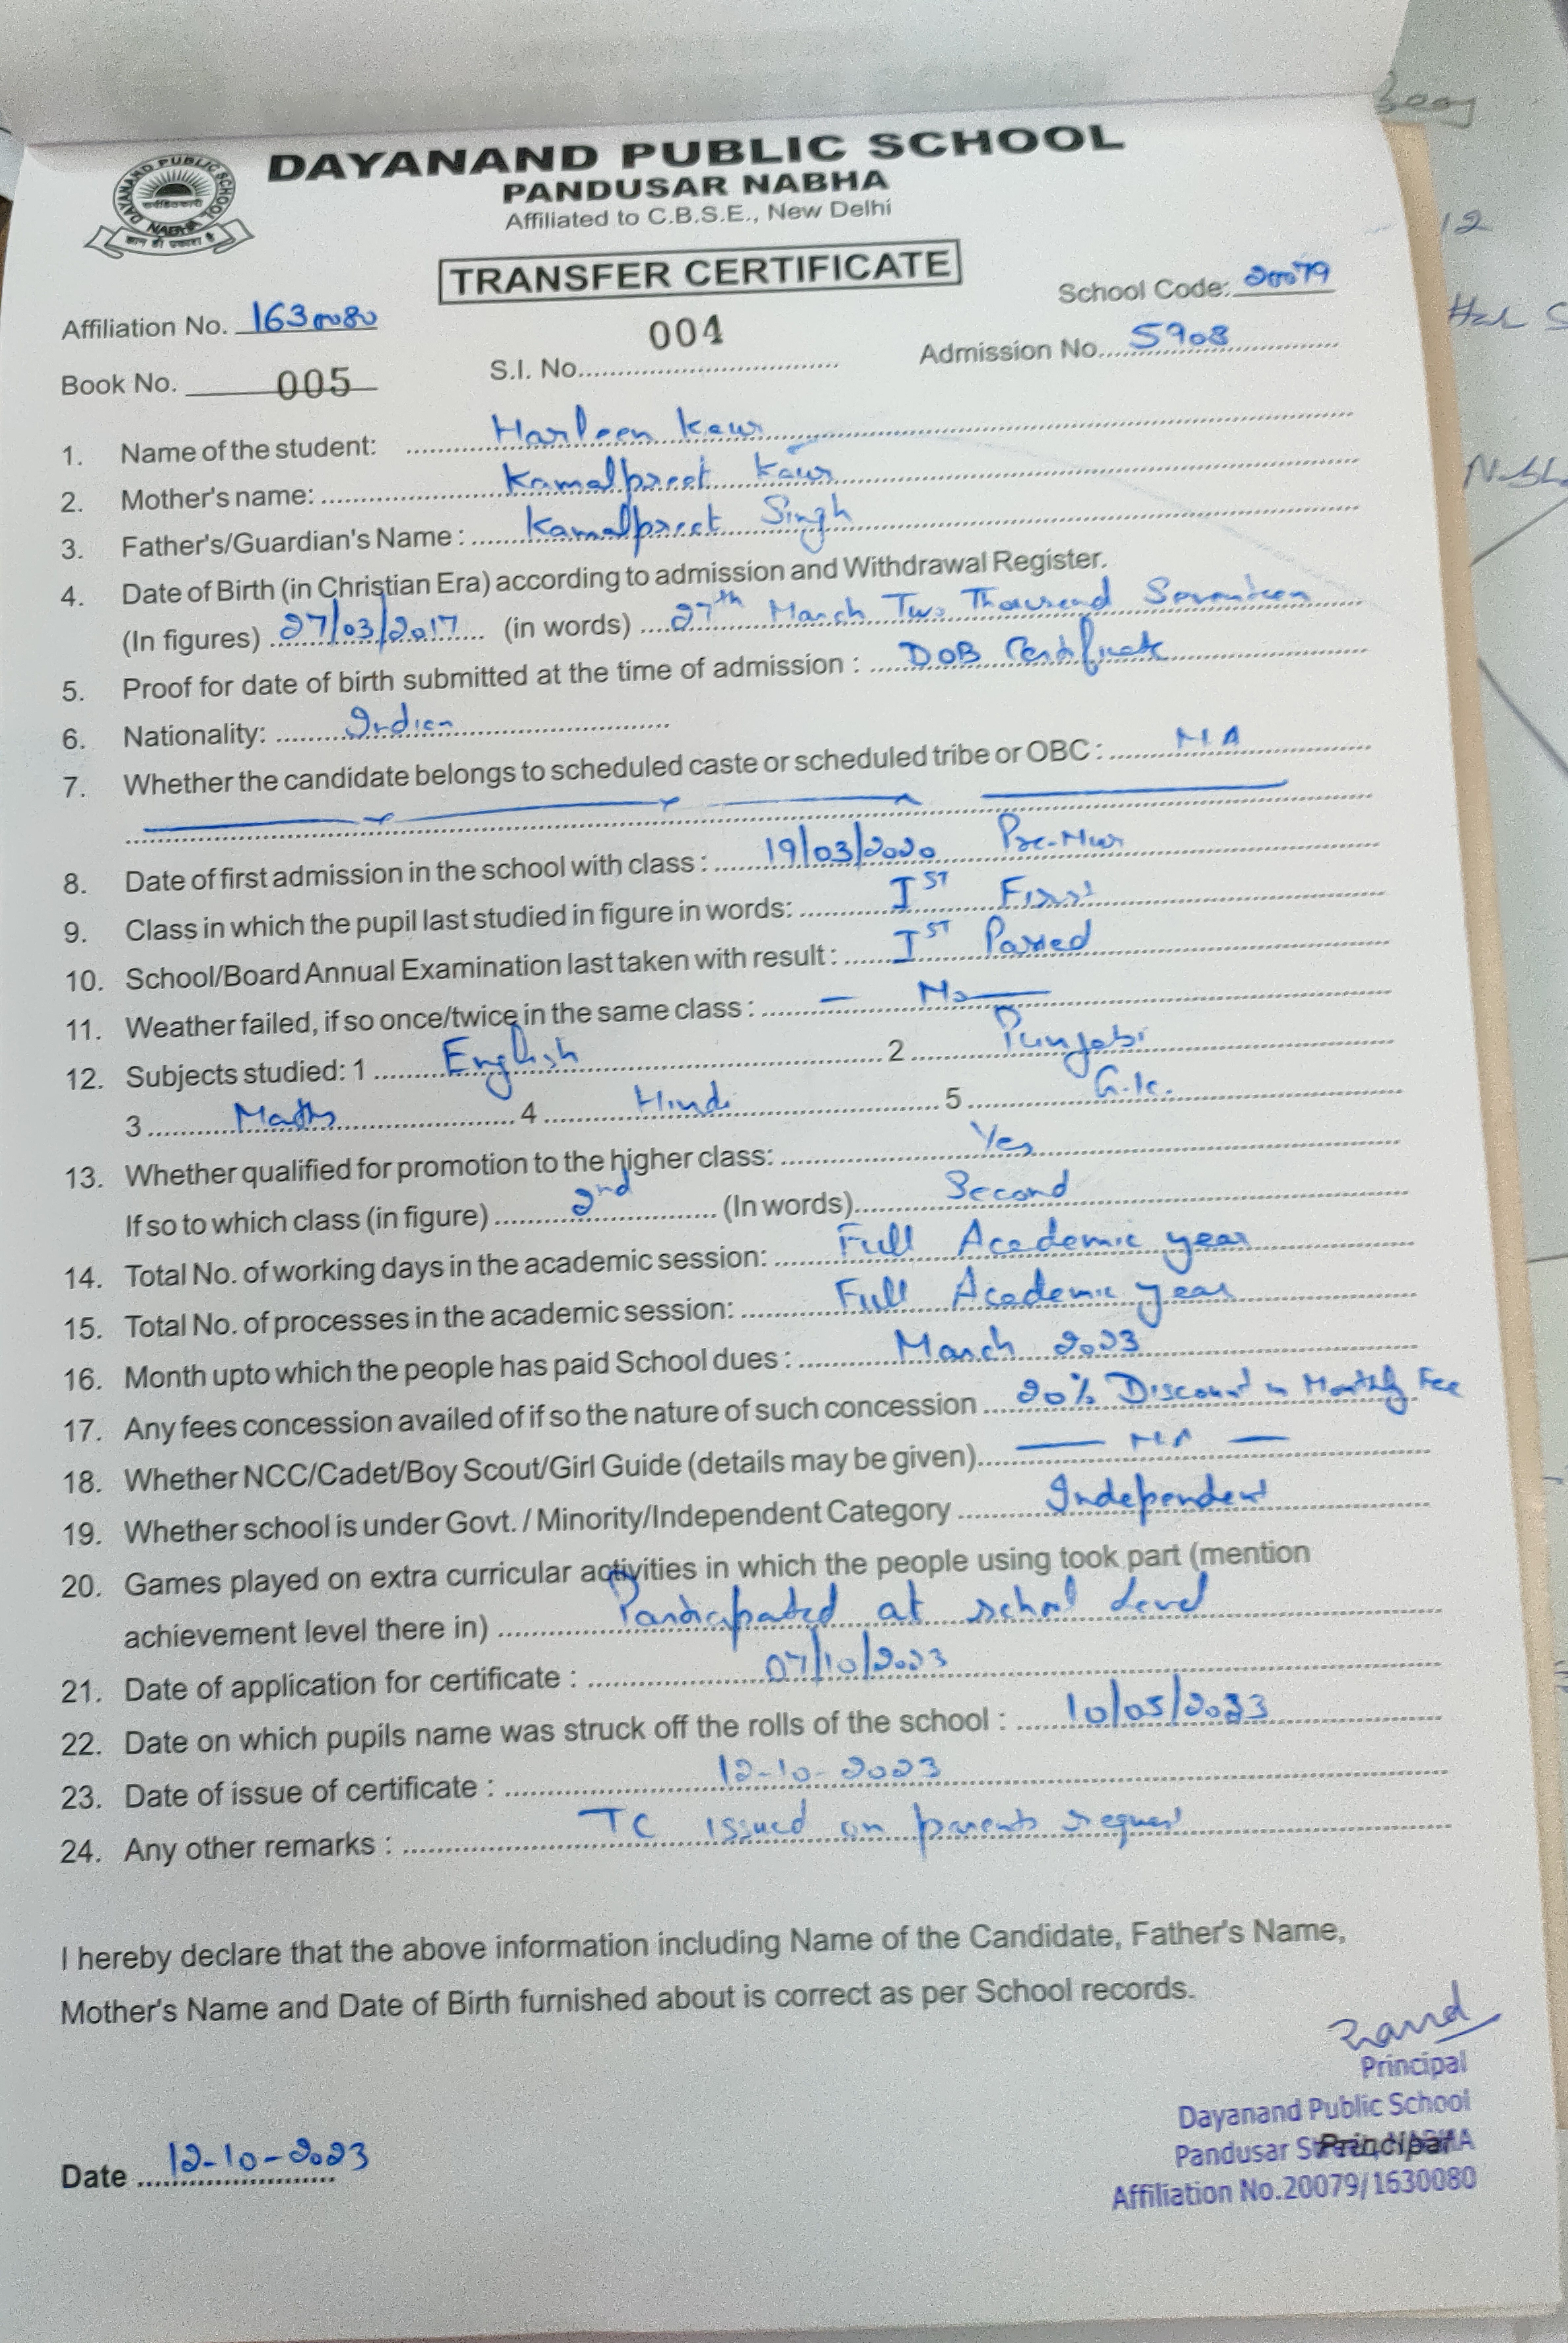 DAYANAND PUBLIC SCHOOL
PANDUSAR NABHA
Affiliated to C.B.S.E., New Delhi
DAYANAND PUBLIC SCHOOL
NABHA
TRANSFER CERTIFICATE
School Code: 20079
Affiliation No. 1630080
004
S.I. No.
Admission No. 5908
Book No. 005
1. Name of the student: Harleen Kaur
2. Mother's name: Kamalpreet Kaur
3. Father's/Guardian's Name : Kamalpreet Singh
4. Date of Birth (in Christian Era) according to admission and Withdrawal Register.
(In figures) 27/03/2017 (in words) 27th March Two Thousand Seventeen
5. Proof for date of birth submitted at the time of admission : DOB Certificate
6. Nationality: Indian
7. Whether the candidate belongs to scheduled caste or scheduled tribe or OBC : NA
8. Date of first admission in the school with class : 19/03/2020 Pre-Nur
9. Class in which the pupil last studied in figure in words: IST First
10. School/Board Annual Examination last taken with result : IST Passed
11. Weather failed, if so once/twice in the same class : No
12. Subjects studied: 1 English 2 Punjabi
3 Maths 4 Hindi 5 G.K.
13. Whether qualified for promotion to the higher class: Yes
If so to which class (in figure) 2nd (In words) Second
14. Total No. of working days in the academic session: Full Academic year
15. Total No. of processes in the academic session: Full Academic year
16. Month upto which the people has paid School dues : March 2023
17. Any fees concession availed of if so the nature of such concession 20% Discount in Monthly Fee
18. Whether NCC/Cadet/Boy Scout/Girl Guide (details may be given) NA
19. Whether school is under Govt. / Minority/Independent Category Independent
20. Games played on extra curricular activities in which the people using took part (mention
achievement level there in) Participated at school level
21. Date of application for certificate : 07/10/2023
22. Date on which pupils name was struck off the rolls of the school : 10/05/2023
23. Date of issue of certificate : 12-10-2023
24. Any other remarks : TC issued on parents request
I hereby declare that the above information including Name of the Candidate, Father's Name,
Mother's Name and Date of Birth furnished about is correct as per School records.
Principal
Dayanand Public School
Pandusar Street, NABHA
Principal
Affiliation No.20079/1630080
Date 12-10-2023
12